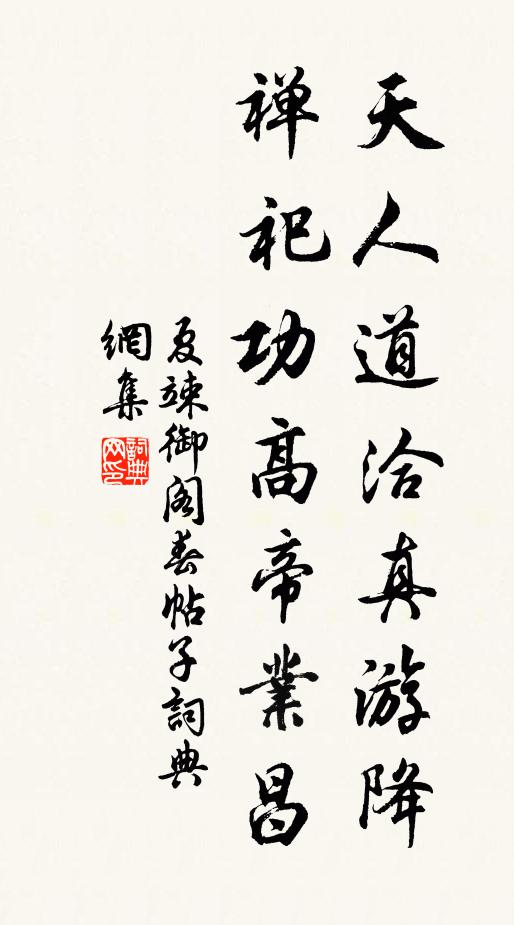 天人道洽真游降
禅祀功高帝業昌
夏竦御阁春帖子詞典
網集
詞典
网印